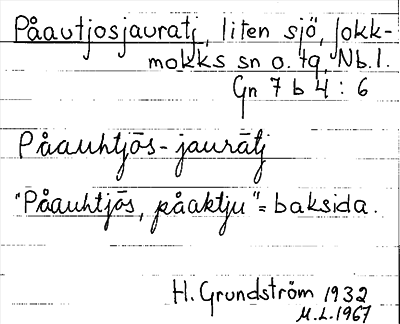 Påautjosjauratj, liten sjö, Jokk-
mokks sn o. tg, Nb.l.
Gn 7 b 4 : 6
Påauhtjōs-jaurātj
"Påauhtjōs, påaktju" = baksida.
H. Grundström 1932
M.L.1967